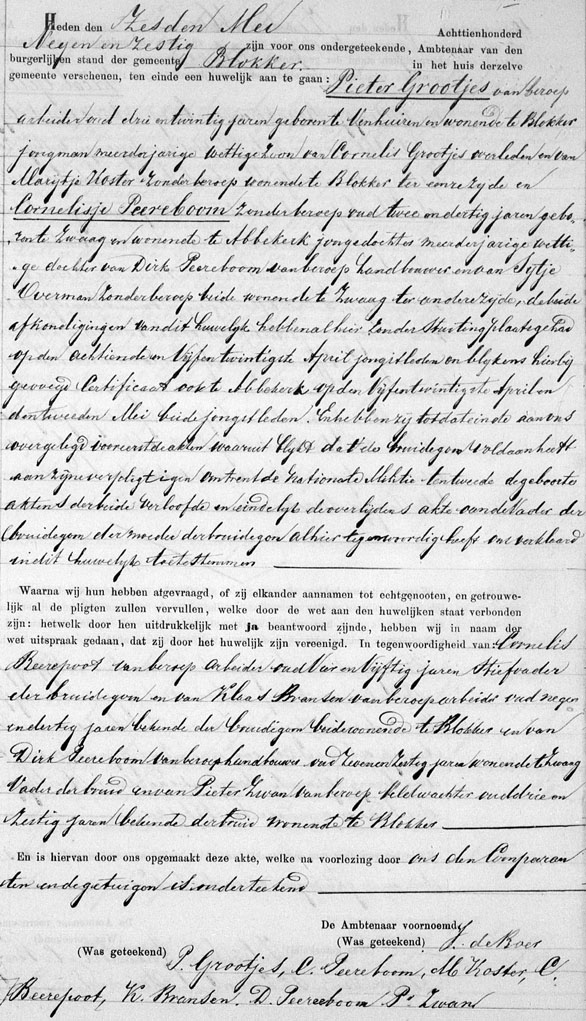 Heden den Zesden Mei Achttienhonderd
Negen en zestig zijn voor ons ondergeteekende, Ambtenaar van den
burgerlijken stand der gemeente Blokker in het huis derzelve
gemeente verschenen, ten einde een huwelijk aan te gaan: Pieter Grootjes van beroep
arbeider oud drie en twintig jaren geboren te Venhuizen en wonende te Blokker
jongman meerderjarige wettige Zoon van Cornelis Grootjes overleden en van
Marijtje Koster Zonder beroep wonende te Blokker ter eenre zyde en
Cornelisje Peereboom Zonder beroep oud twee en dertig jaren gebo-
ren te Zwaag en wonende te Abbekerk jongedochter meerderjarige wetti-
ge dochter van Dirk Peereboom van beroep landbouwer en van Sytje
Overman Zonder beroep beide wonende te Zwaag ter andere zijde, de beide
afkondigingen van dit huwelyk hebben alhier Zonder Stuiting plaats gehad
op den achtiende en Vijfentwintigste April jongstleden en blykens hierbij
gevoegd Certificaat ook te Abbekerk op den Vijfentwintigste April en
den tweeden Mei beide jongstleden. En hebben zij tot dat einde aan ons
overgelegd vooreerst de akten waaruit blykt dat de bruidegom voldaan heeft
aan zijne verpligtigen omtrent de Nationale Militie ten tweede de geboorte
aktens der beide verloofde en eindelyk de overlijdens akte van de Vader der
bruidegom der moeder der bruidegom alhier tegenwoordig heeft ons verklaard
in dit huwelyk toe te stemmen
Waarna wij hun hebben afgevraagd, of zij elkander aannamen tot echtgenooten, en getrouwe-
lijk al de pligten zullen vervullen, welke door de wet aan den huwelijken staat verbonden
zijn: hetwelk door hen uitdrukkelijk met ja beantwoord zijnde, hebben wij in naam der
wet uitspraak gedaan, dat zij door het huwelijk zijn vereenigd. In tegenwoordigheid van: Cornelis
Beerepoot van beroep arbeider oud Vier en Vijftig jaren Stiefvader
der bruidegom en van Klaas Bransen van beroep arbeider oud negen
en dertig jaren bekende der bruidegom beide wonende te Blokker en van
Dirk Peereboom van beroep landbouwer oud Zeven en Zestig jaren wonende te Zwaag
Vader der bruid en van Pieter Zwan van beroep Veldwachter oud drie en
Zestig jaren bekende der bruid wonende te Blokker
En is hiervan door ons opgemaakt deze akte, welke na voorlezing door ons den Comparan
ten en de getuigen is onderteekend
De Ambtenaar voornoemd,
(Was geteekend) J. de Boer
(Was geteekend) P. Grootjes, C. Peereboom, M Koster, C.
Beerepoot, K. Bransen. D. Peereboom P. Zwan